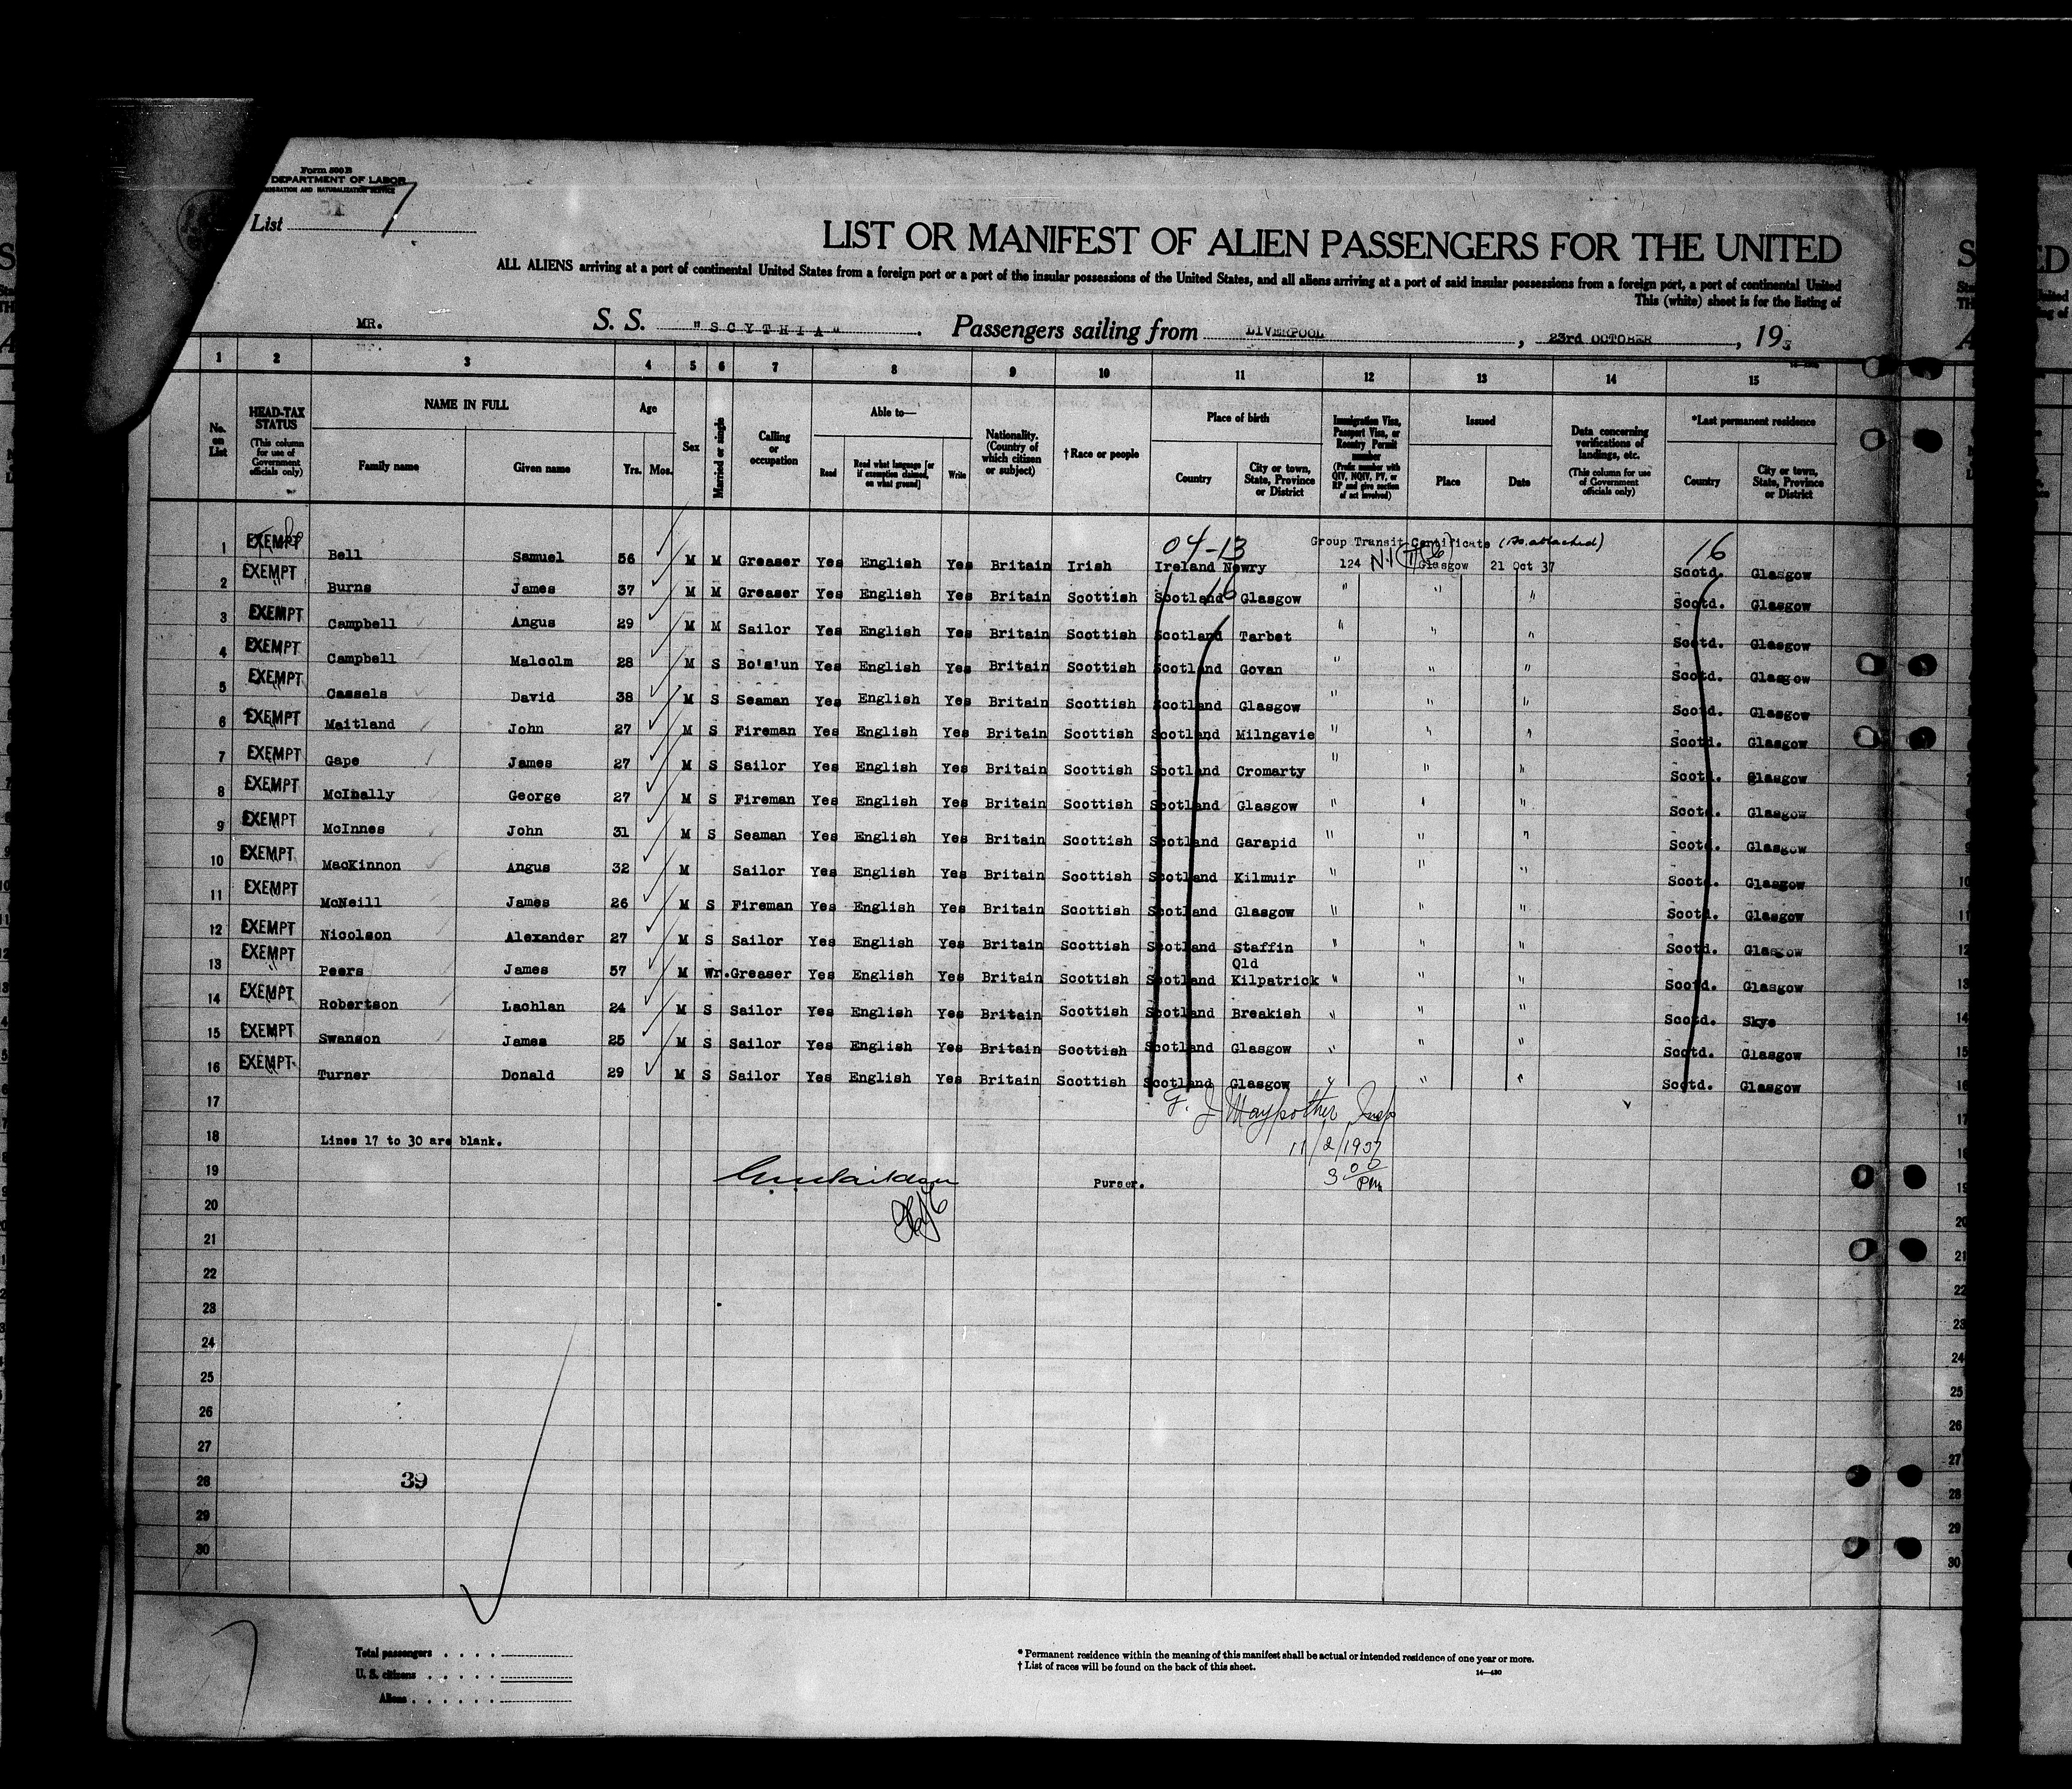 Form 500 B
DEPARTMENT OF LABOR
IMMIGRATION AND NATURALIZATION SERVICE
List 7
LIST OR MANIFEST OF ALIEN PASSENGERS FOR THE UNITED
ALL ALIENS arriving at a port of continental United States from a foreign port or a port of the insular possessions of the United States, and all aliens arriving at a port of said insular possessions from a foreign port, a port of continental United
This (white) sheet is for the listing of
MR. S. S. "SCYTHIA" Passengers sailing from LIVERPOOL, 23rd OCTOBER, 193
1 2 3 4 5 6 7 8 9 10 11 12 13 14 15
No. on List
HEAD-TAX STATUS (This column for use of Government officials only)
NAME IN FULL Family name Given name
Age Yrs. Mos.
Sex
Married or single
Calling or occupation
Able to— Read Read what language [or if exemption claimed, on what ground] Write
Nationality. (Country of which citizen or subject)
† Race or people
Place of birth Country City or town, State, Province or District
Immigration Visa, Passport Visa, or Reentry Permit number (Prefix number with QIV, NQIV, PV, or RP and give section of act involved)
Issued Place Date
Data concerning verifications of landings, etc. (This column for use of Government officials only)
*Last permanent residence Country City or town, State, Province or District
04-13 Group Transit Certificate (As attached) 16
1 EXEMPT Bell Samuel 56 M M Greaser Yes English Yes Britain Irish Ireland Newry 124 Glasgow 21 Oct 37 Scotd. Glasgow
2 EXEMPT Burns James 37 M M Greaser Yes English Yes Britain Scottish Scotland 16 Glasgow " " " Scotd. Glasgow
3 EXEMPT Campbell Angus 29 M M Sailor Yes English Yes Britain Scottish Scotland Tarbet " " " Scotd. Glasgow
4 EXEMPT Campbell Malcolm 28 M S Bo's'un Yes English Yes Britain Scottish Scotland Govan " " " Scotd. Glasgow
5 EXEMPT Cassels David 38 M S Seaman Yes English Yes Britain Scottish Scotland Glasgow " " " Scotd. Glasgow
6 EXEMPT Maitland John 27 M S Fireman Yes English Yes Britain Scottish Scotland Milngavie " " " Scotd. Glasgow
7 EXEMPT Gape James 27 M S Sailor Yes English Yes Britain Scottish Scotland Cromarty " " " Scotd. Glasgow
8 EXEMPT McInally George 27 M S Fireman Yes English Yes Britain Scottish Scotland Glasgow " " " Scotd. Glasgow
9 EXEMPT McInnes John 31 M S Seaman Yes English Yes Britain Scottish Scotland Garapid " " " Scotd. Glasgow
10 EXEMPT MacKinnon Angus 32 M Sailor Yes English Yes Britain Scottish Scotland Kilmuir " " " Scotd. Glasgow
11 EXEMPT McNeill James 26 M S Fireman Yes English Yes Britain Scottish Scotland Glasgow " " " Scotd. Glasgow
12 EXEMPT Nicolson Alexander 27 M S Sailor Yes English Yes Britain Scottish Scotland Staffin " " " Scotd. Glasgow
13 EXEMPT Peers James 57 M Wr. Greaser Yes English Yes Britain Scottish Scotland Old Kilpatrick " " " Scotd. Glasgow
14 EXEMPT Robertson Lachlan 24 M S Sailor Yes English Yes Britain Scottish Scotland Breakish " " " Scotd. Skye
15 EXEMPT Swanson James 25 M S Sailor Yes English Yes Britain Scottish Scotland Glasgow " " " Scotd. Glasgow
16 EXEMPT Turner Donald 29 M S Sailor Yes English Yes Britain Scottish Scotland Glasgow " " " Scotd. Glasgow
17 F. J. Maypother Insp
18 Lines 17 to 30 are blank. 11/2/1937
19 Purser. 3 00 PM
20
21
22
23
24
25
26
27
28 39
29
30
7
Total passengers
U. S. citizens
Aliens
* Permanent residence within the meaning of this manifest shall be actual or intended residence of one year or more.
† List of races will be found on the back of this sheet.
14—430